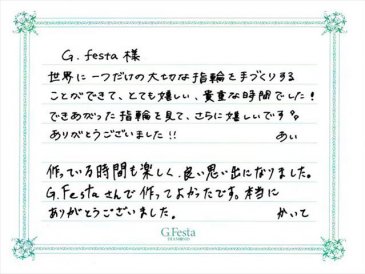 G.festa 様
世界に一つだけの大切な指輪を手づくりする
ことができて、とても嬉しい、貴重な時間でした!
できあがった指輪を見て、さらに嬉しいです。
ありがとうございました!! あい
作っている時間も楽しく、良い思い出になりました。
G.Festaさんで作ってよかったです。本当に
ありがとうございました。 かいて
G.Festa